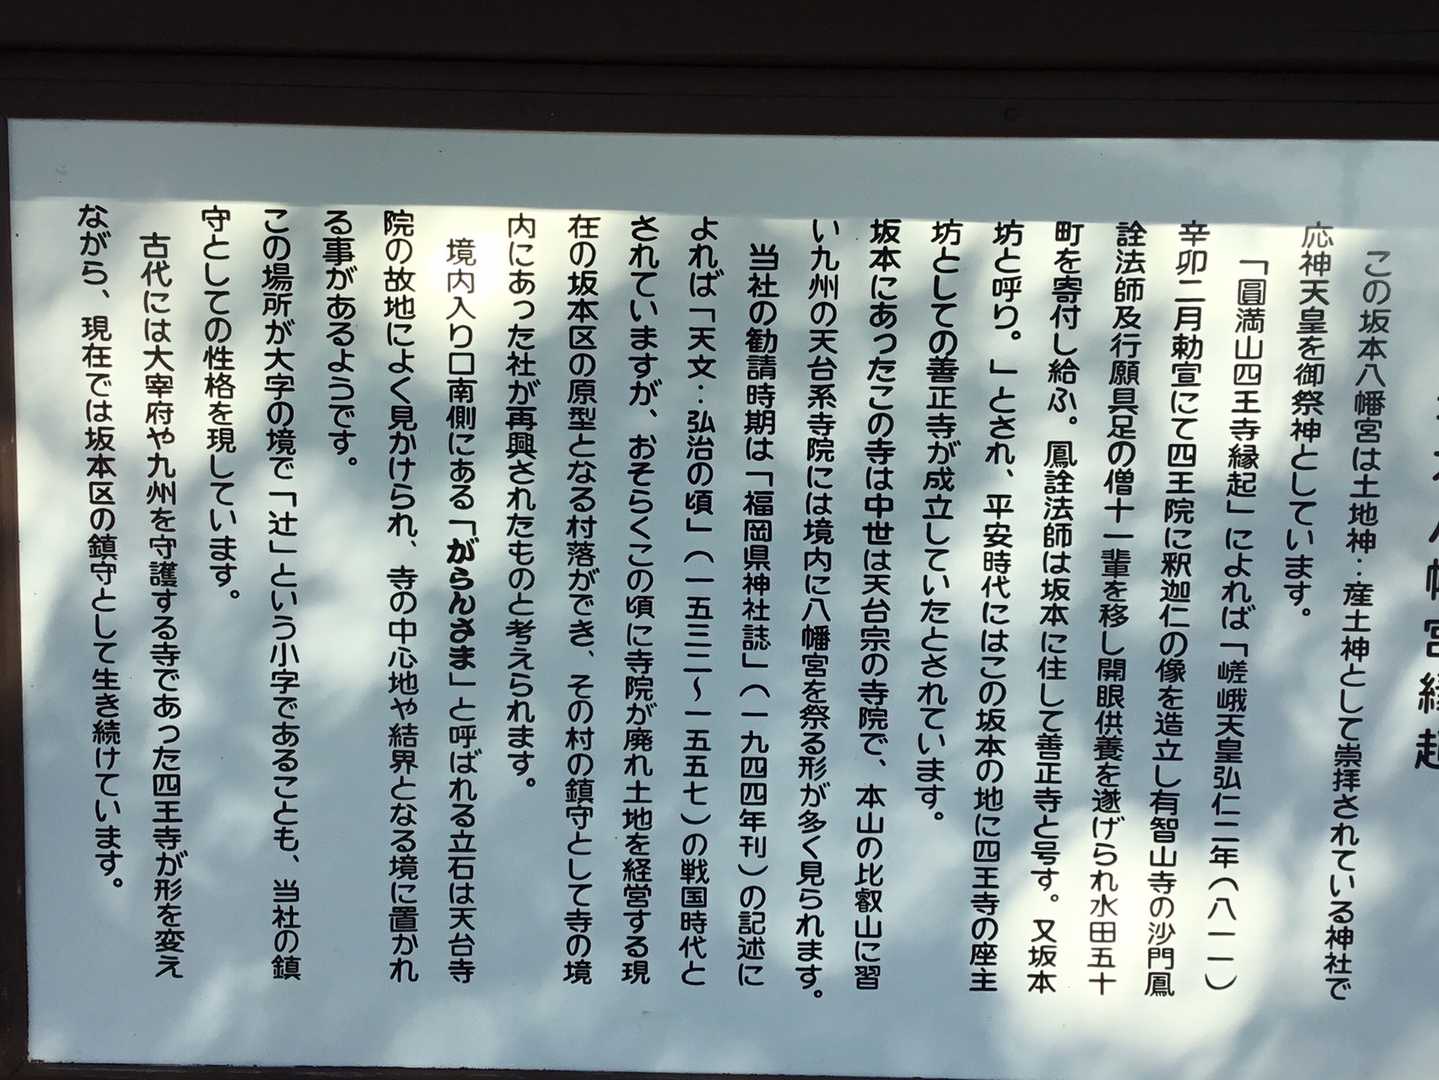 八幡宮縁起
この坂本八幡宮は土地神‥産土神として崇拝されている神社で
応神天皇を御祭神としています。
「圓満山四王寺縁起」によれば「嵯峨天皇弘仁二年（八一一）
辛卯二月勅宣にて四王院に釈迦仁の像を造立し有智山寺の沙門鳳
詮法師及行願具足の僧十一輩を移し開眼供養を遂げられ水田五十
町を寄付し給ふ。鳳詮法師は坂本に住して善正寺と号す。又坂本
坊と呼り。」とされ、平安時代にはこの坂本の地に四王寺の座主
坊としての善正寺が成立していたとされています。
坂本にあったこの寺は中世は天台宗の寺院で、本山の比叡山に習
い九州の天台系寺院には境内に八幡宮を祭る形が多く見られます。
当社の勧請時期は「福岡県神社誌」（一九四四年刊）の記述に
よれば「天文‥弘治の頃」（一五三二～一五五七）の戦国時代と
されていますが、おそらくこの頃に寺院が廃れ土地を経営する現
在の坂本区の原型となる村落ができ、その村の鎮守として寺の境
内にあった社が再興されたものと考えられます。
境内入り口南側にある「がらんさま」と呼ばれる立石は天台寺
院の故地によく見かけられ、寺の中心地や結界となる境に置かれ
る事があるようです。
この場所が大字の境で「辻」という小字であることも、当社の鎮
守としての性格を現しています。
古代には大宰府や九州を守護する寺であった四王寺が形を変え
ながら、現在では坂本区の鎮守として生き続けています。